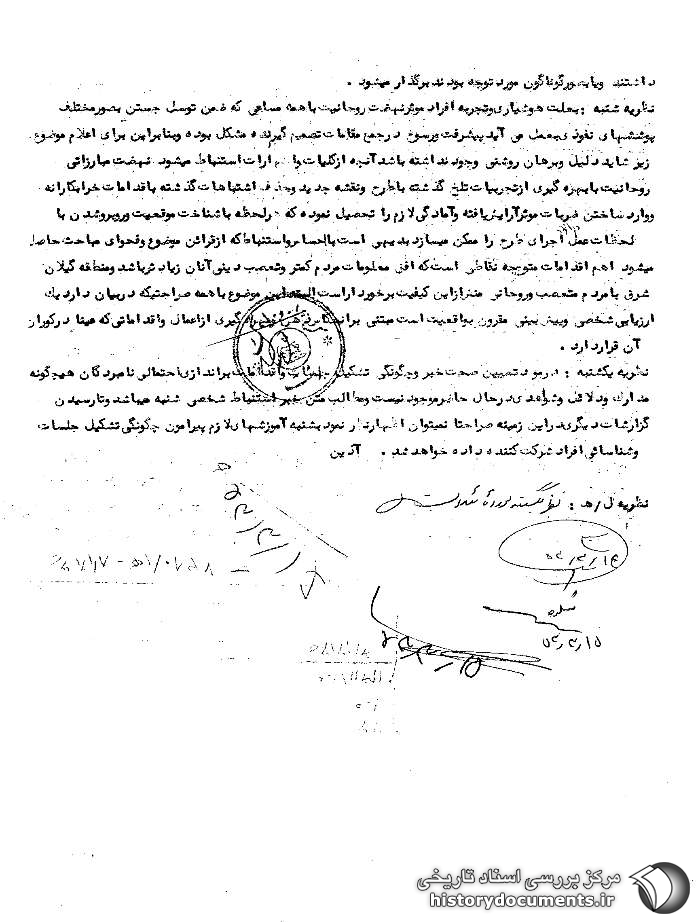 داشتند وبا بصورگوناگون مورد توجه بودند برگذار میشود .
نظریه شنبه : بعلت هوشیاری وتجربه افراد موثر نهضت روحانیت با همه مساعی که ضمن توسل جستن بصور مختلف
پوششهای نفوذی بعمل می آید پیشرفت ورسوخ در جمع مقامات تصمیم گیرنده مشکل بوده وبنابراین برای اعلام موضوع
زیر شاید دلیل وبرهان روشنی وجود نداشته باشد آنچه از کلیات و امارات استنباط میشود نهضت مبارزاتی
روحانیت با بهره گیری از تجربیات تلخ گذشته با طرح ونقشه جدید وحذف اشتباهات گذشته با قدامات خرابکارانه
ووارد ساختن ضربات موثر آرایش یافته وآمادگی لازم را تحصیل نموده که در لحظه با شناخت موقعیت وروبروشدن با
لحظات عمل اجرای طرح را ممکن میسازد بدیهی است با احساس واستنباط که از قرائن موضوع وفحوای مباحث حاصل
میشود اهم اقدامات متوجه نقاطی است که افق معلومات مردم کمتر وتعصب دینی آنان زیاد تر باشد ومنطقه گیلان
شرق با مردم متعصب وروحانی از این کیفیت برخوردار است البته این موضوع با همه صراحتیکه در بیان دارد یک
ارزیابی شخصی وپیش بینی مقرون بواقعیت است مبتنی بر گیری از اعمال واقداماتی که عینا در کوران
آن قرار دارد .
نظریه یکشنبه : در مورد تعیین صحت خبر وچگونگی تشکیل جلسات و براندازی احتمالی نامبردگان هیچگونه
مدارک ودلائل وشواهدی در حال حاضر موجود نیست ومطالب متن خبر استنباط شخصی شنبه میباشد وتا رسیدن
گزارشات دیگری در این زمینه صراحتا نمیتوان اظهار نظر نمود بشنبه آموزشهای لازم پیرامون چگونگی تشکیل جلسات
وشناسائی افراد شرکت کننده داده خواهد شد . آذین
نظریه ل / هـ :
مرکز بررسی اسناد تاریخی
historydocuments.ir